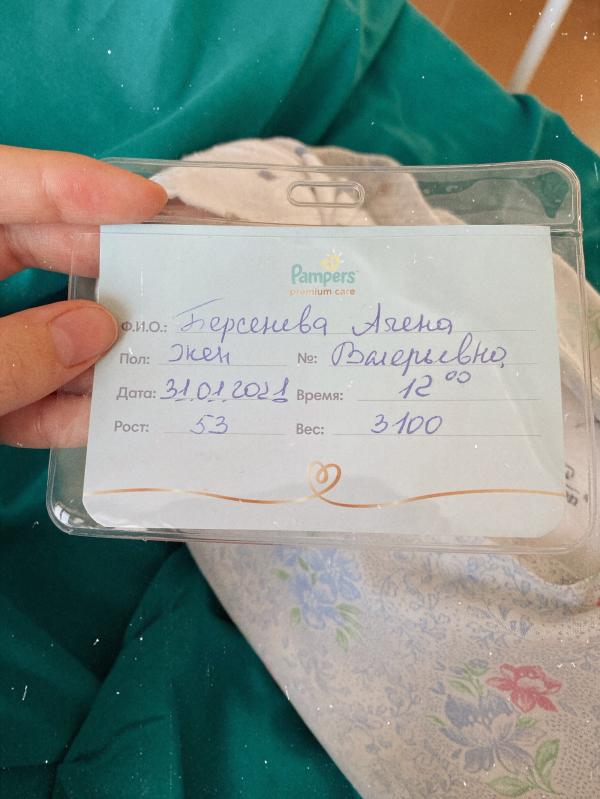 Pampers
premium care
Ф.И.О.: Берсенева Алена
Пол: Жен №: Валерьевна
Дата: 31.01.2021 Время: 12 00
Рост: 53 Вес: 3100